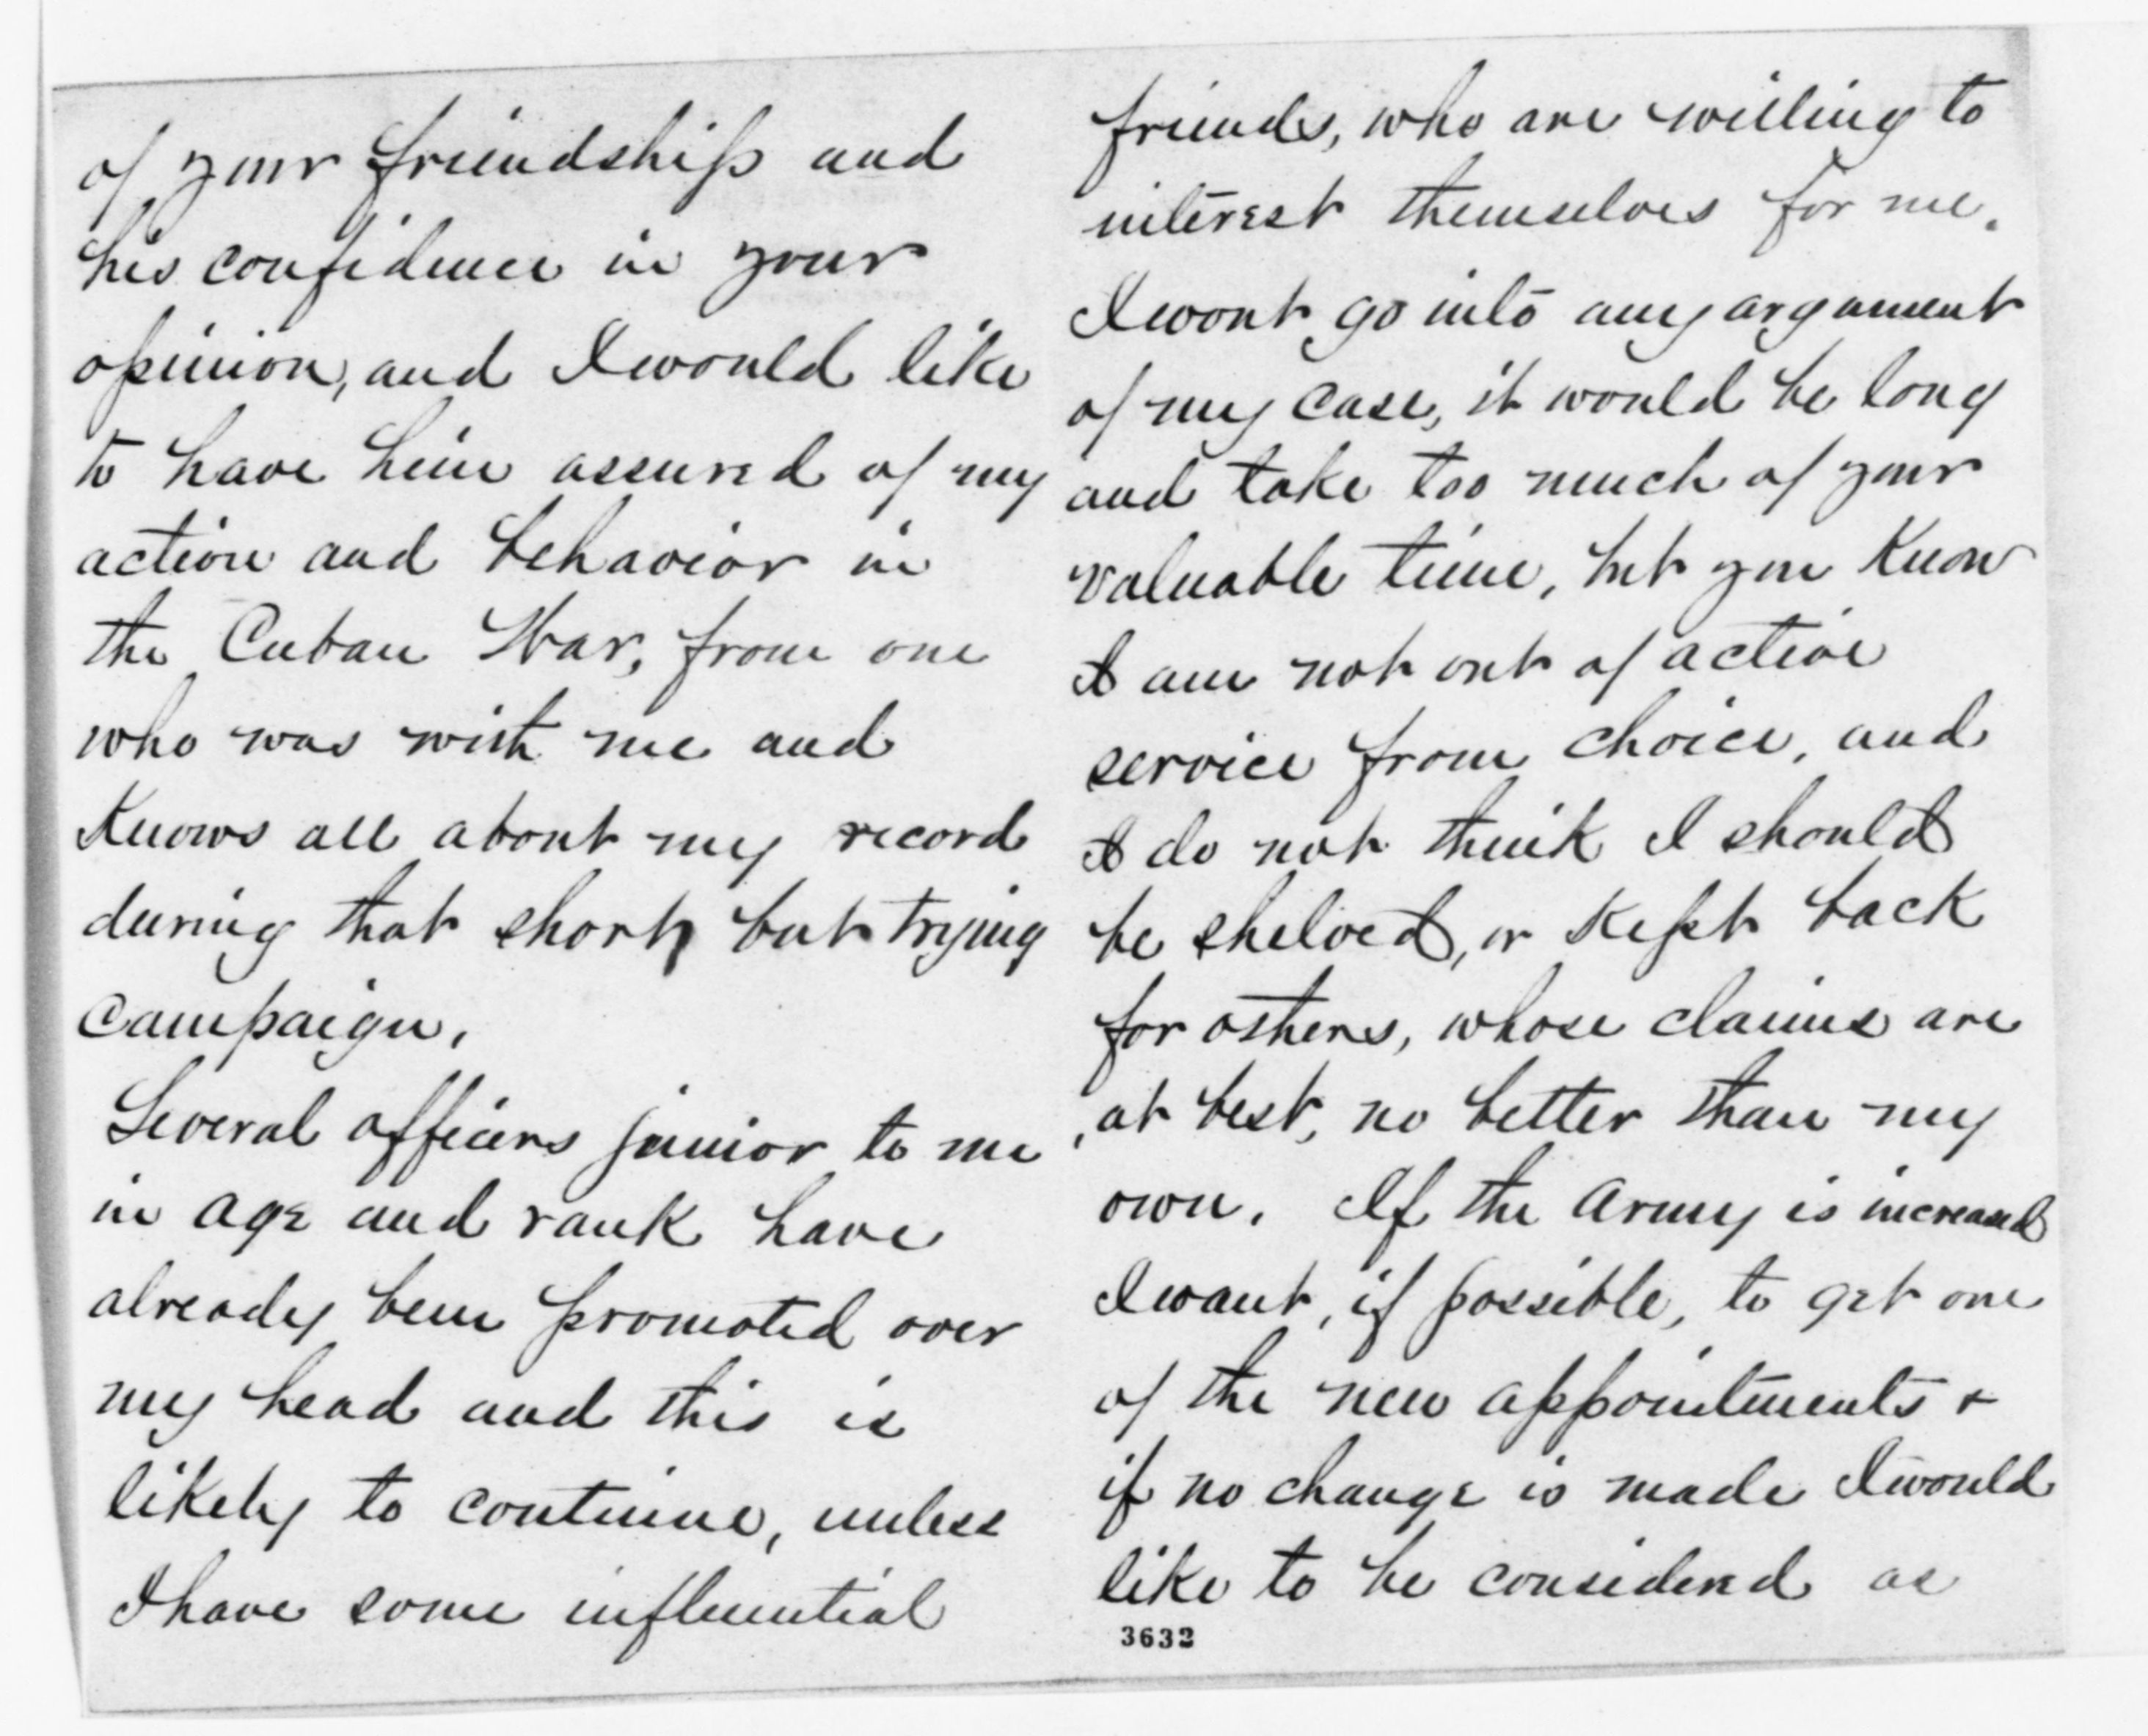 of your friendship and
his confidence in your
opinion, and I would like
to have him assured of my
action and behavior in
the Cuban War, from one
who was with me and
Knows all about my record
during that short, but trying
campaign.
Several officers junior to me
in age and rank have
already been promoted over
my head and this is
likely to continue, unless
I have some influential
friends, who are willing to
interest themselves for me.
I wont go into any argument
of my case, it would be long
and take too much of your
valuable time, but you Know
I am not out of active
service from choice, and
I do not think I should
be shelved, or Kept back
for others, whose claims are
, at best, no better than my
own. If the Army is increased
I want, if possible, to get one
of the new appointments &
if no change is made I would
like to be considered as
3632